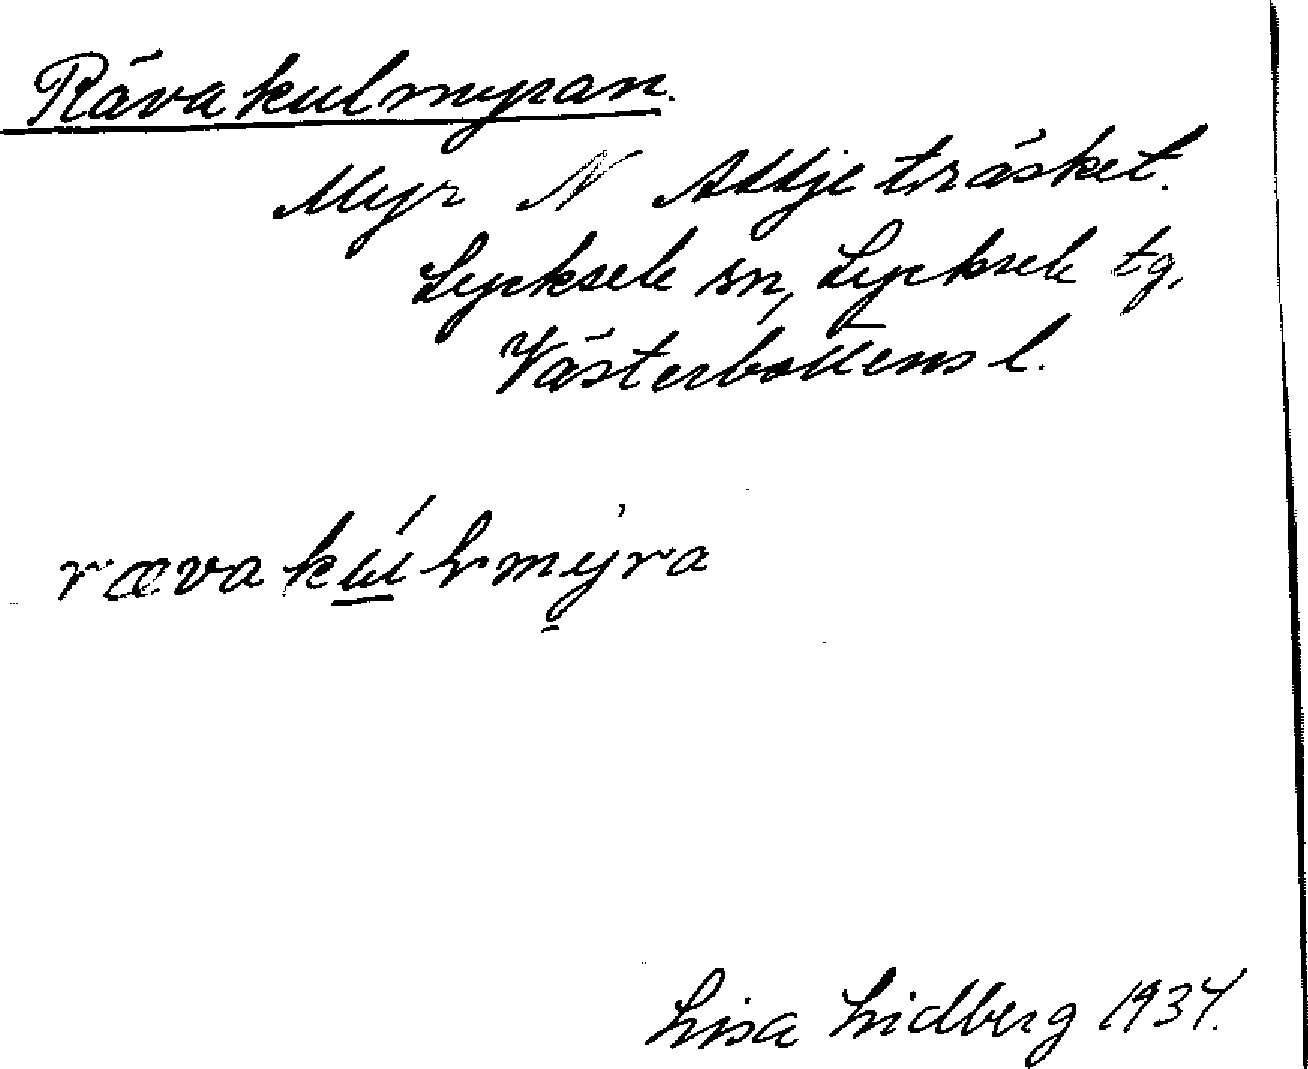 Rävakulmyran.
Myr N Attjeträsket.
Lycksele sn, Lycksele tg,
Västerbottens l.
rævakúlmyra
Lisa Lidberg 1934.